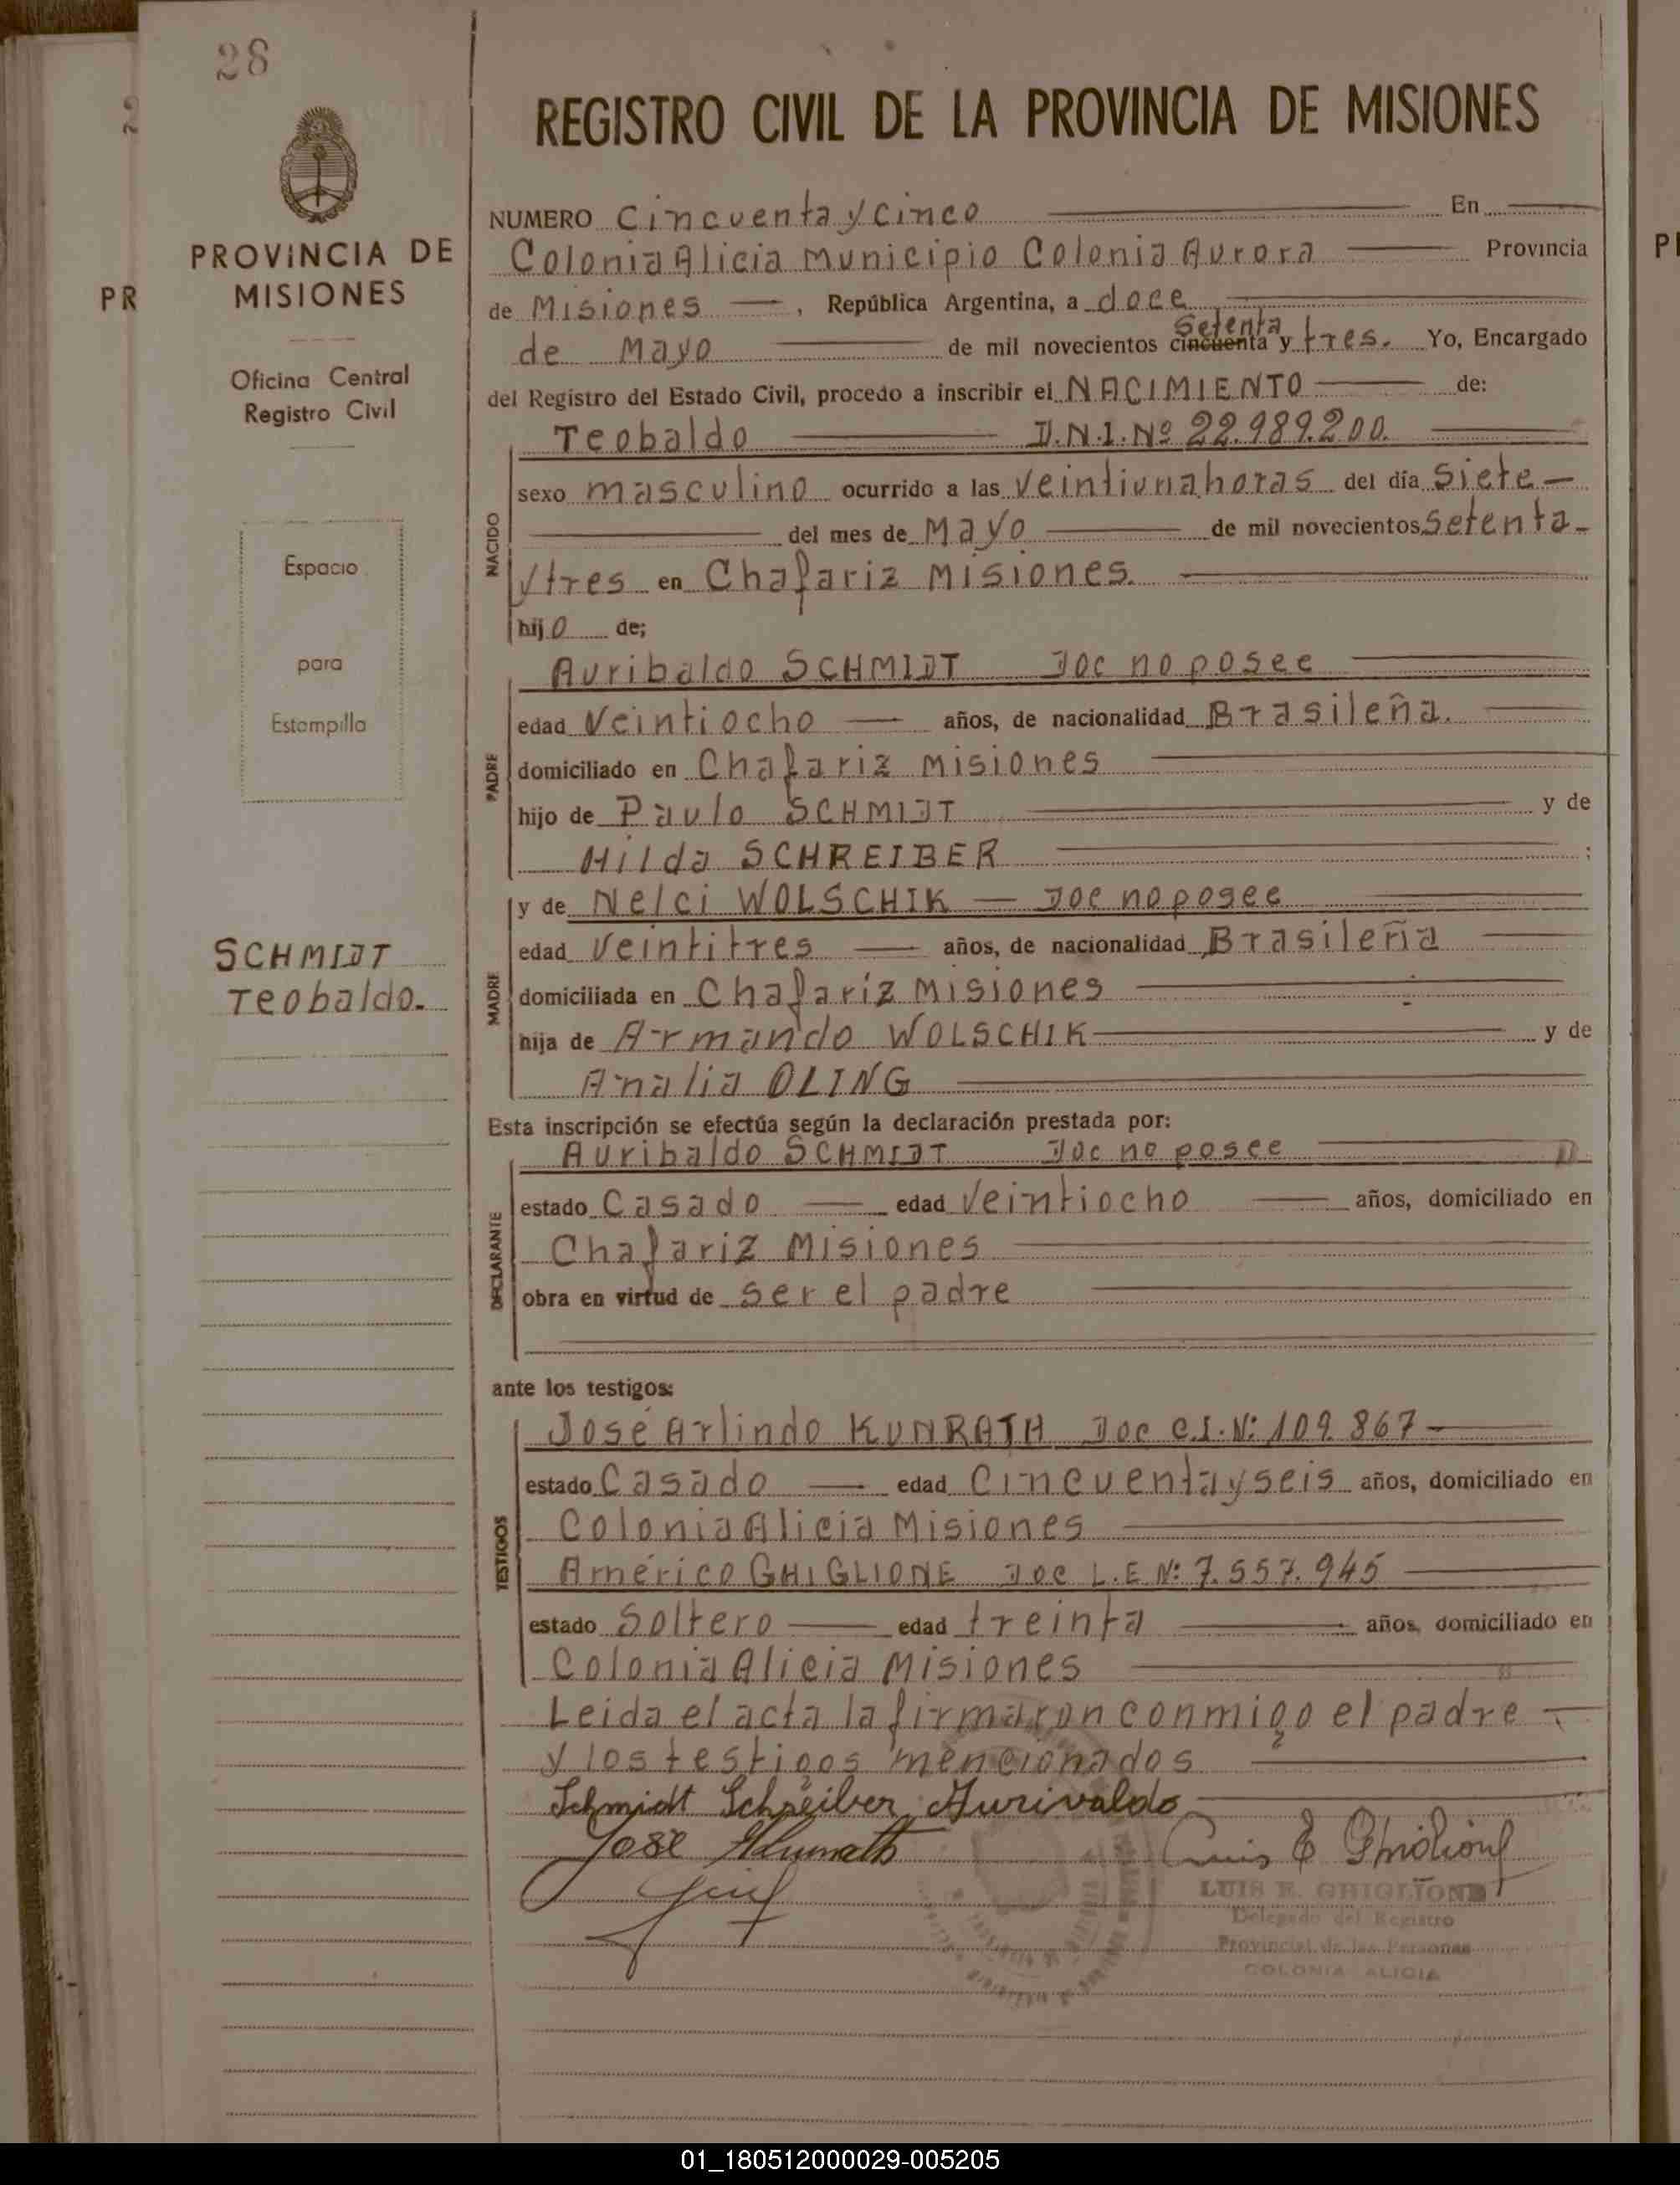 28
REGISTRO CIVIL DE LA PROVINCIA DE MISIONES
PROVINCIA DE
MISIONES
Oficina Central
Registro Civil
Espacio
para
Estampilla
SCHMIDT
Teobaldo.
PR
NUMERO Cincuenta y cinco En
Colonia Alicia Municipio Colonia Aurora Provincia
de Misiones, República Argentina, a doce
setenta
de Mayo de mil novecientos cincuenta y tres. Yo, Encargado
del Registro del Estado Civil, procedo a inscribir el NACIMIENTO de:
NACIDO
Teobaldo D.N.I. Nº 22.989.200.
sexo masculino ocurrido a las veintiuna horas del día siete
del mes de Mayo de mil novecientos setenta
y tres en Chafariz Misiones.
hijo de;
PADRE
Auribaldo SCHMIDT Doc no posee
edad veintiocho años, de nacionalidad Brasileña.
domiciliado en Chafariz Misiones
hijo de Paulo SCHMIDT y de
Hilda SCHREIBER ;
MADRE
y de Nelci WOLSCHIK Doc no posee
edad veintitres años, de nacionalidad Brasileña
domiciliada en Chafariz Misiones
hija de Armando WOLSCHIK y de
Analia OLING
Esta inscripción se efectúa según la declaración prestada por:
DECLARANTE
Auribaldo SCHMIDT Doc no posee
estado Casado edad veintiocho años, domiciliado en
Chafariz Misiones
obra en virtud de ser el padre
ante los testigos:
TESTIGOS
José Arlindo KUNRATH Doc C.I. Nº 109.867
estado Casado edad Cincuenta y seis años, domiciliado en
Colonia Alicia Misiones
Américo GHIGLIONE Doc L.E Nº 7.557.945
estado Soltero edad treinta años, domiciliado en
Colonia Alicia Misiones
Leida el acta la firmaron conmigo el padre
y los testigos mencionados
Schmidt Schreiber Aurivaldo
José Kunrath
Luis E Ghiglione
LUIS E. GHIGLIONE
Delegado del Registro
Provincial de las Personas
COLONIA ALICIA
01_180512000029-005205